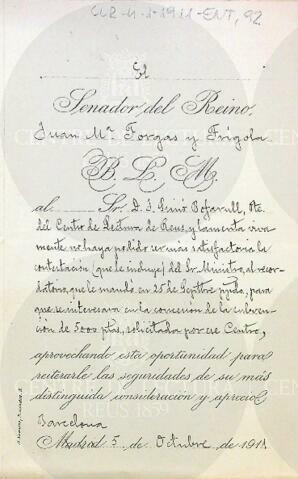 CLR-4-1-1911-ENT, 92
El
Senador del Reino,
Juan Mª Forgas y Frígola
B. L. M.
al Sr. D. J. Simó Bofarull, Pte.
del Centro de Lectura de Reus, y lamenta viva-
mente no haya podido ser más satisfactoria la
contestación (que le incluye) del Sr. Ministro, al recor-
datorio, que le mandó en 25 de Septbre ppdo, para
que se interesara en la concesion de la subven-
ción de 5000 ptas, solicitada por ese Centro,
aprovechando esta oportunidad para
reiterarle las seguridades de su más
distinguida consideración y aprecio
Barcelona
Madrid 5 de Octubre de 1911
CENTRE DE LECTURA
REUS 1859